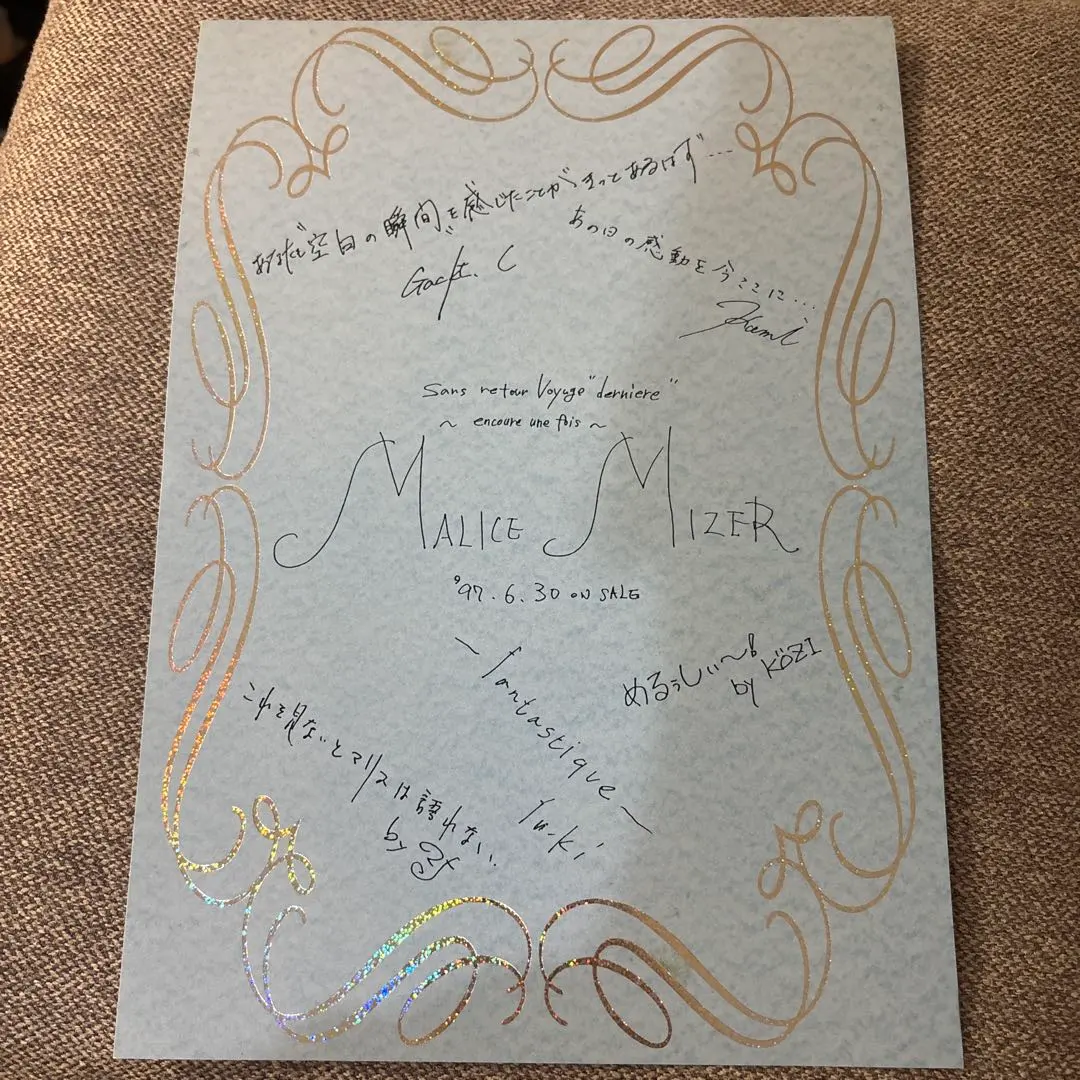 あなたも空白の瞬間を感じたことがきっとあるはず…
Gackt. C
あの日の感動を今ここに…
Kami
Sans retour Voyage "derniere"
~ encoure une fois ~
MALICE MIZER
'97.6.30 ON SALE
~fantastique~
Yu-ki
めるぅしぃ〜!
by KöZI
これを見ないとマリスは語れない.
by